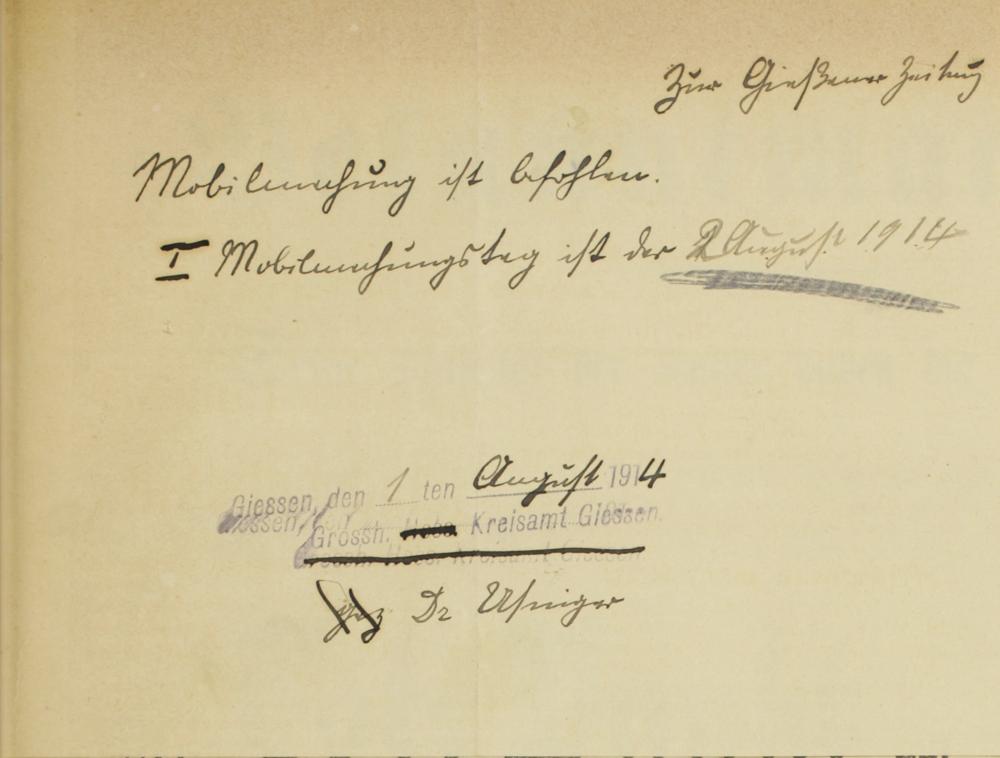 Zur Gießener Zeitung
Mobilmachung ist befohlen.
I Mobilmachungstag ist der 2 August 1914
Giessen, den 1 ten August 1914
Grossh. Hess. Kreisamt Giessen.
Grossh. Hess. Kreisamt Giessen.
gez Dr Usinger